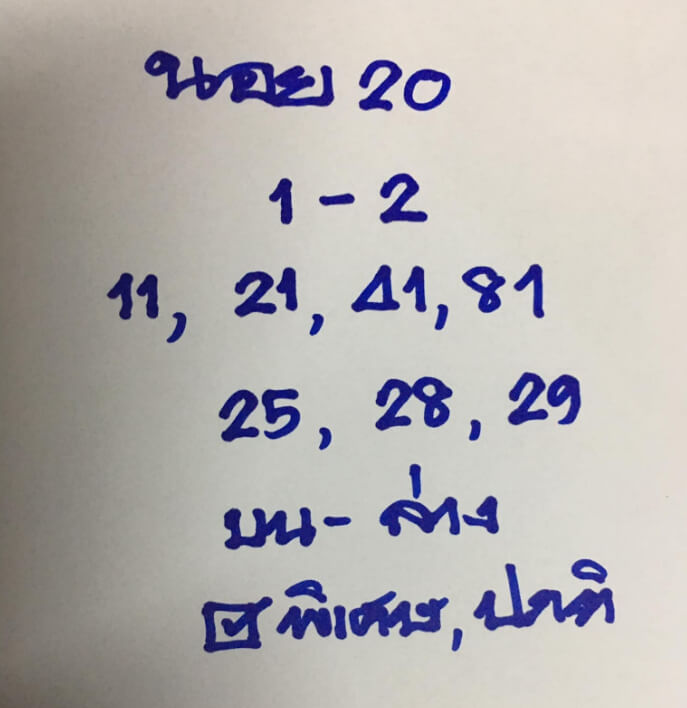 นอย 20
1 - 2
11, 21, 41, 81
25, 28, 29
บน - ล่าง
☑ พิเศษ, ปกติ